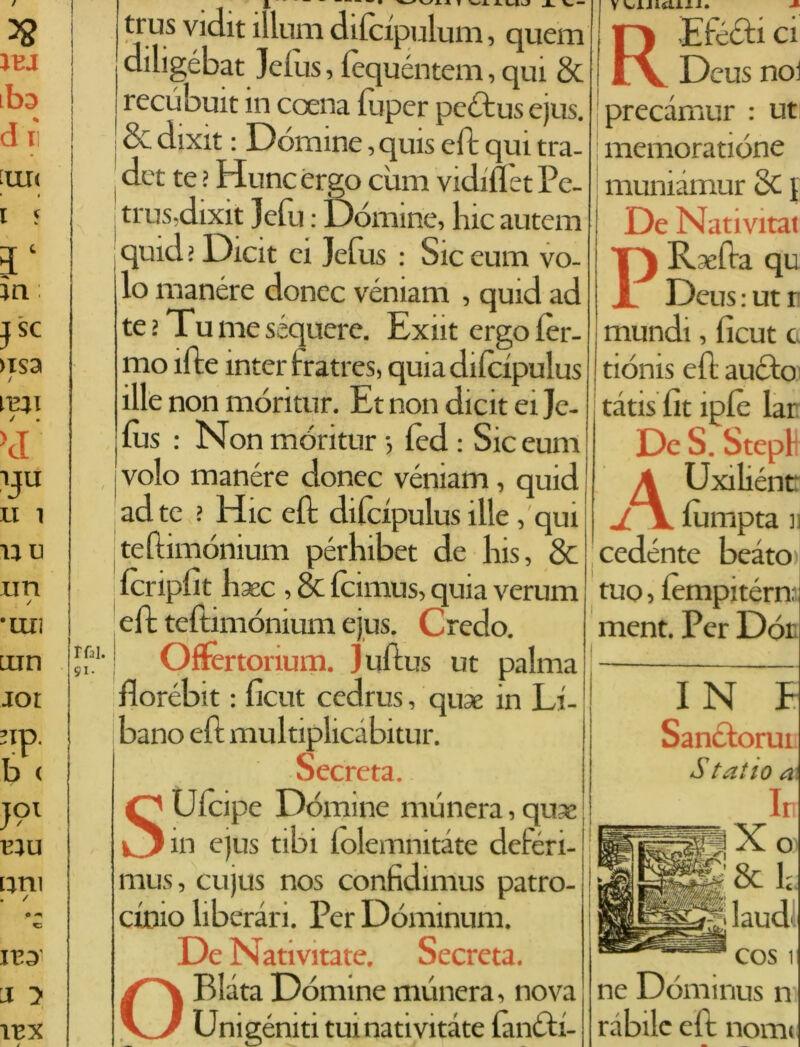 trus vidit illum diſcípulum, quem
diligébat Jeſus, ſequéntem, qui &
recúbuit in cœna ſuper pectus ejus.
& dixit : Dómine, quis eſt qui tra-
det te ? Hunc ergo cùm vidíſſet Pe-
trus, dixit Jeſu : Dómine, hic autem
quid ? Dicit ei Jeſus : Sic eum vo-
lo manére donec véniam , quid ad
te ? Tu me séquere. Exiit ergo ſer-
mo iſte inter fratres, quia diſcípulus
ille non móritur. Et non dicit ei Je-
ſus : Non móritur ; ſed : Sic eum
volo manére donec véniam , quid
ad te ? Hic eſt diſcípulus ille , qui
teſtimónium pérhibet de his, &
ſcripſit hæc , & ſcimus, quia verum
eſt teſtimónium ejus. Credo.
Pſal. 91.
Offertorium. Juſtus ut palma
florébit : ſicut cedrus, quæ in Lí-
bano eſt multiplicábitur.
Secreta.
SUſcipe Dómine múnera, quæ
in ejus tibi ſolemnitáte deféri-
mus, cujus nos confídimus patro-
cínio liberári. Per Dóminum.
De Nativitate. Secreta.
OBláta Dómine múnera, nova
Unigéniti tui nativitáte ſancti-
REfécti ci
Deus
precámur : ut
memoratióne
muniámur &
De Nativitat
PRæſta qu
Deus : ut
mundi , ſicut
tiónis eſt aucto
tátis ſit ipſe lar
De S. Steph
AUxiliént
ſumpta
cedénte beáto
tuo, ſempitérn
ment. Per Dóm
IN F
Sanctoru
Statio a
In
X o
&
laud
cos
ne Dóminus n
rábile eſt nom